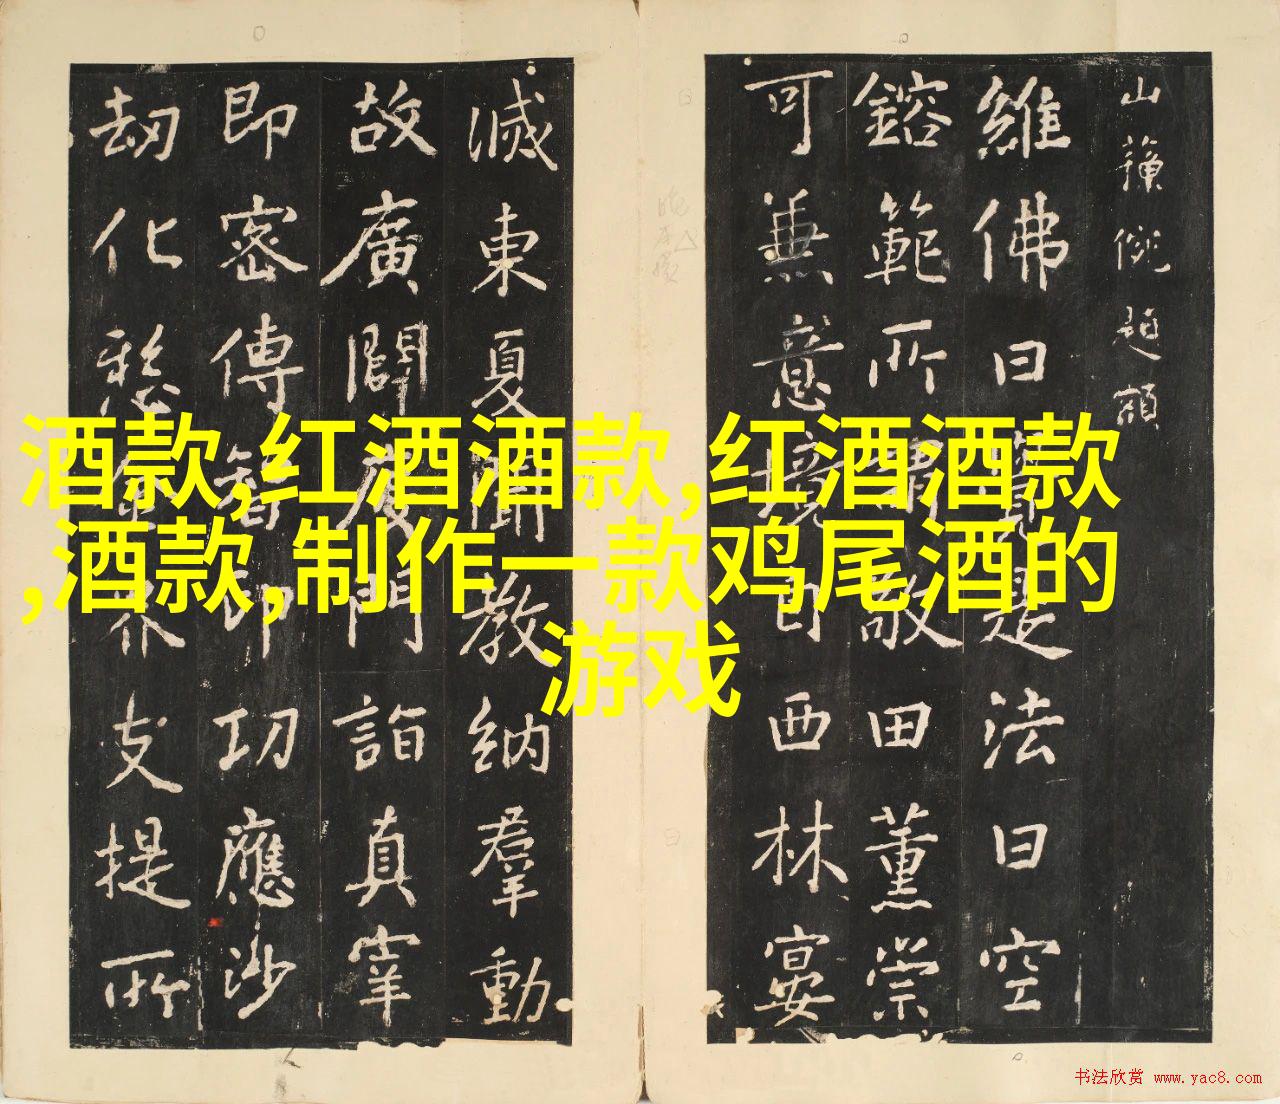 酒款,红酒酒款,红酒酒款
,酒款,制作一款鸡尾酒的
游戏
山
維佛曰
法曰空
鎔範所
田薰崇
可兼意境
西林宴
滅東夏
教納羣動
故廣闢
門詣真寀
即密傳
印功應沙
劫化
支提所
书法欣赏 www.yac8.com